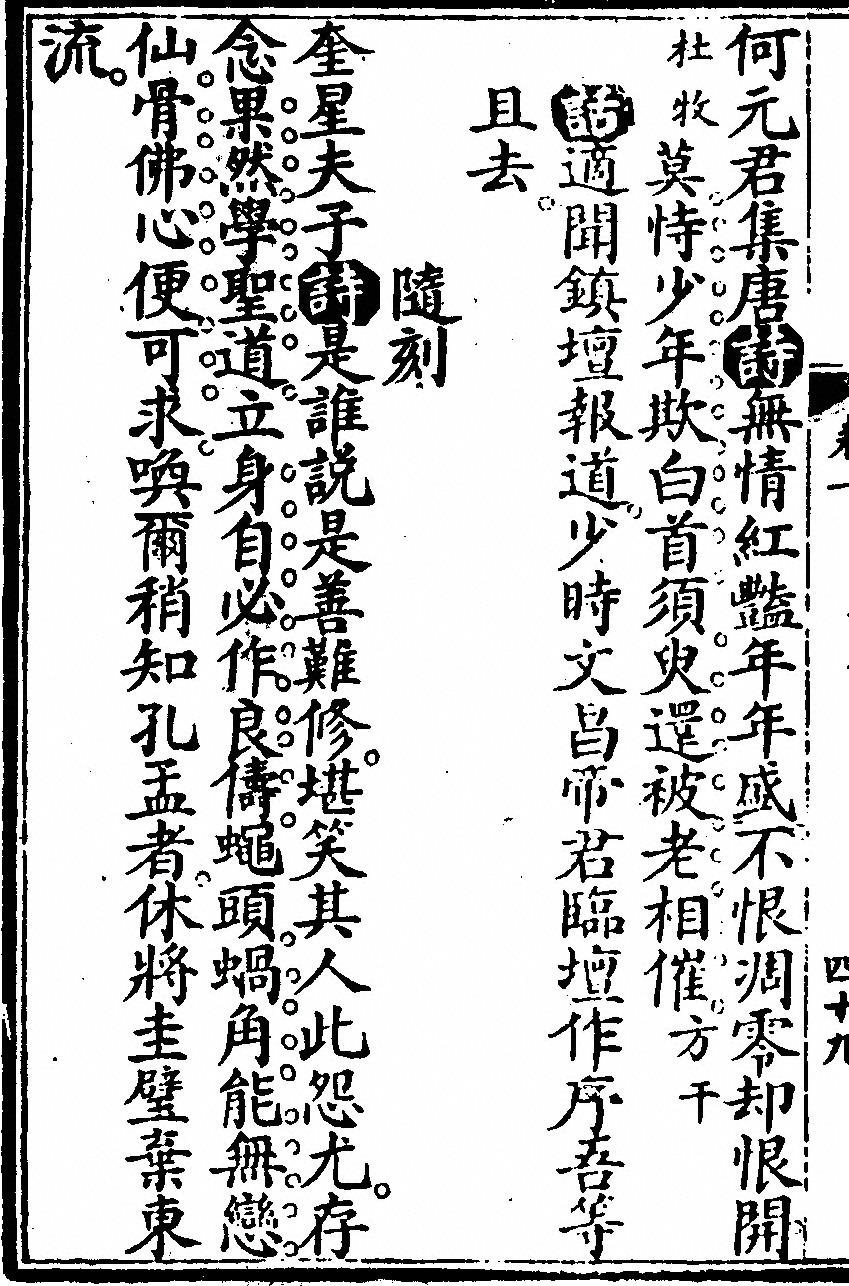 何元君集唐詩無情紅豔年年盛不恨凋零却恨開
杜牧莫恃少年欺白首須臾還被老相催方干
話適聞鎮壇報道少時文昌帝君臨壇作序吾等
且去
隨刻
奎星夫子詩是誰説是善難修堪笑其人此怨尤存
念果然學聖道立身自必作良儔蠅頭蝸角能無戀
仙骨佛心便可求喚爾稍知孔孟者休將圭璧棄東
流
四十九